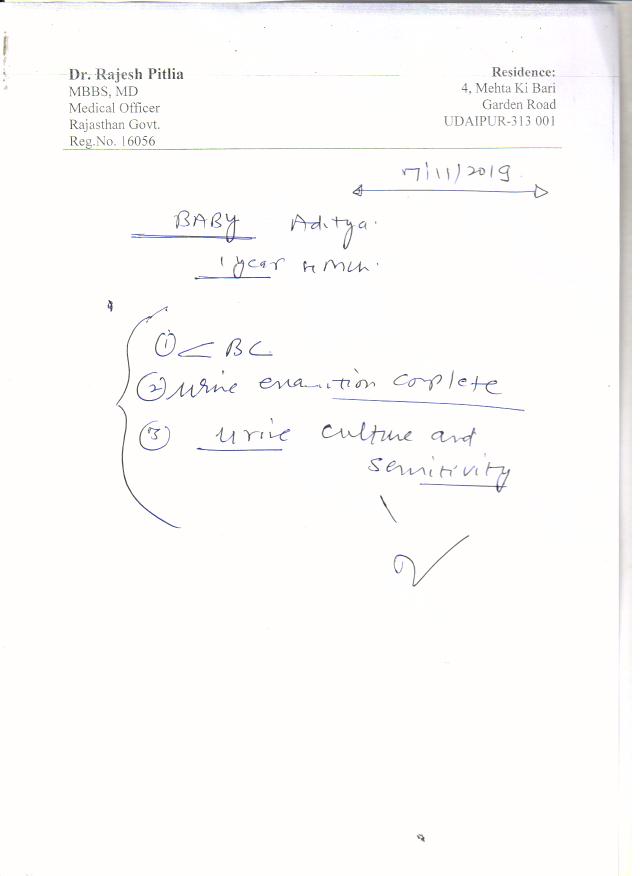 Dr. Rajesh Pitlia
MBBS, MD
Medical Officer
Rajasthan Govt.
Reg.No. 16056
Residence:
4, Mehta Ki Bari
Garden Road
UDAIPUR-313 001
7/11/2019
BABY Aditya.
1 year
① CBC
② urine complete
③ urine culture and
sensitivity